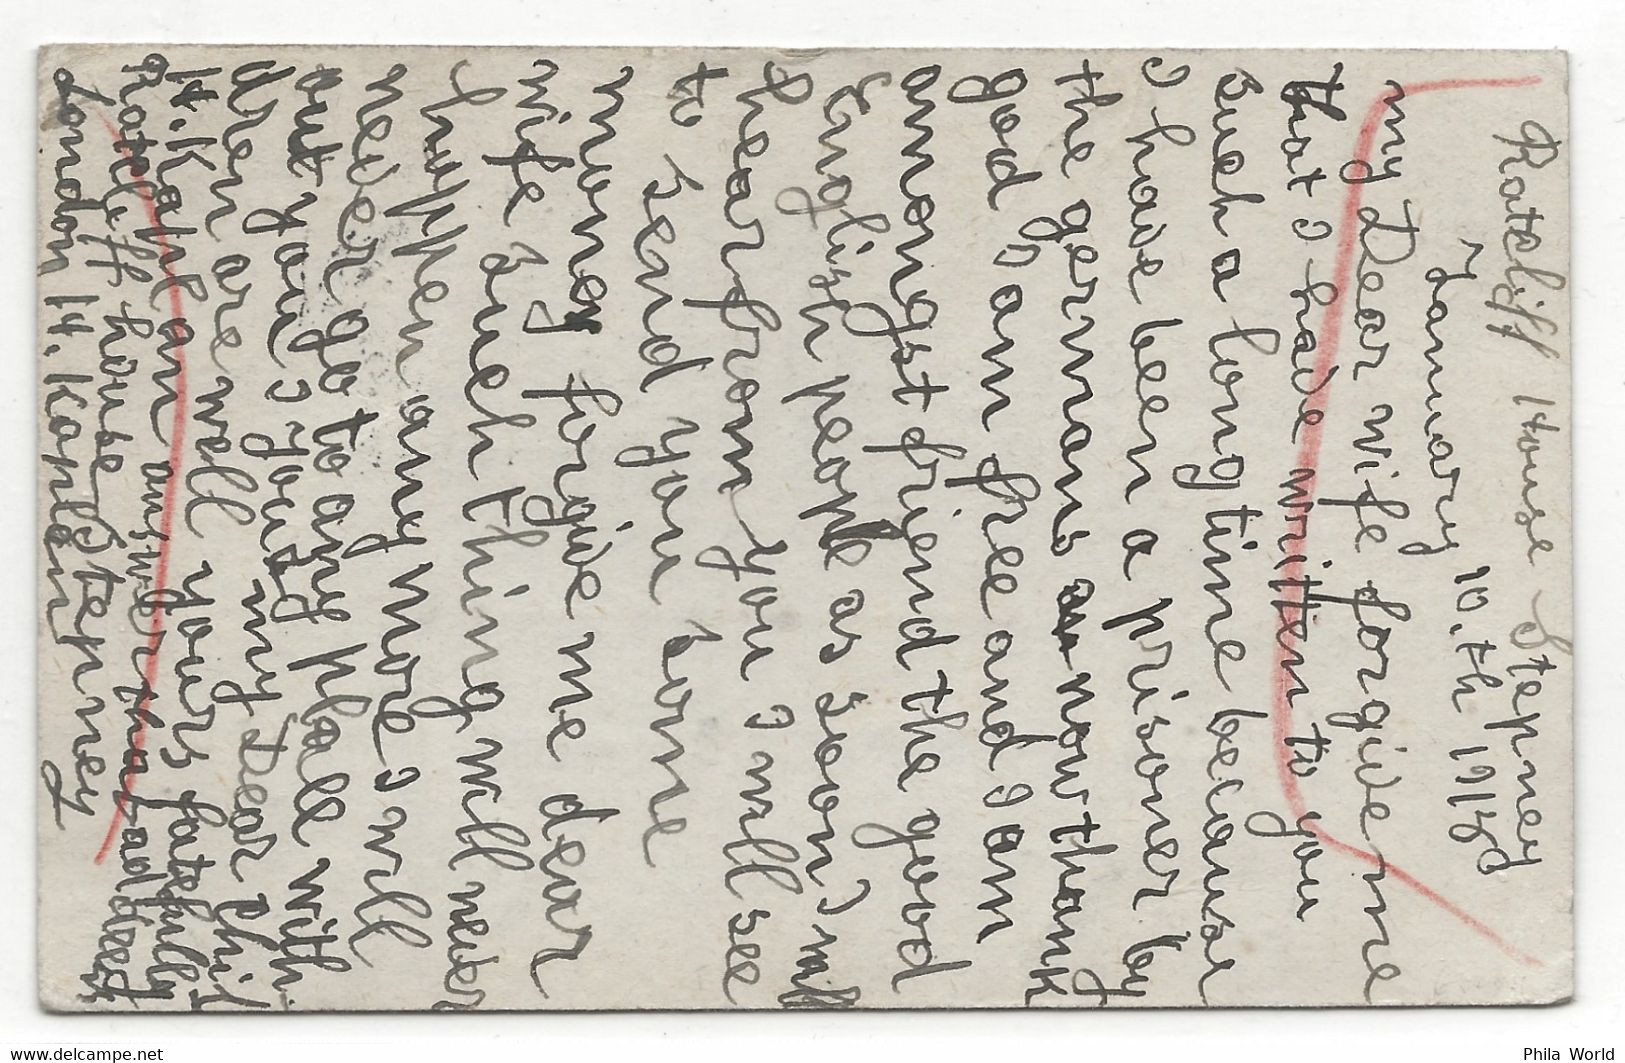 Ratcliff House Stepney
January 10.th 1915
my Dear wife forgive me
that I have written to you
such a long time because
I have been a prisoner by
the germans as now thank
god I am free and I am
amongst friend the good
English people as soon I will
hear from you I will see
to send you some
money forgive me dear
wife such thing will never
happen any more I will
never go to any place with
out you I hous my Dear Chil
dren are well yours fatefully
H. Kaplan answer tha tad dress
Ratcliff house Stepney
London H. Kaplan
Phila World